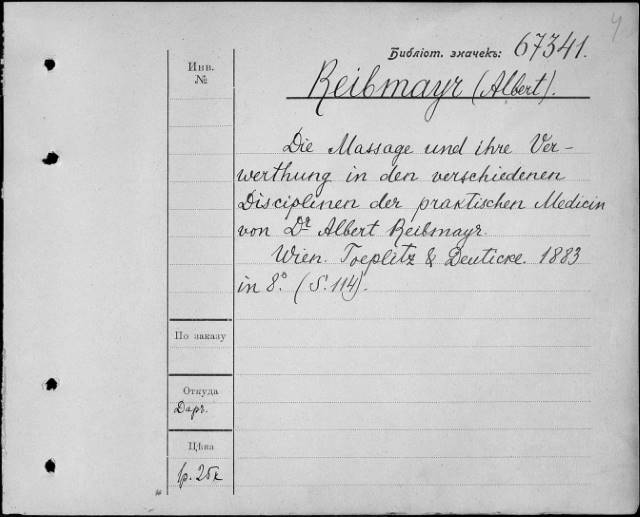 Библіот. значекъ: 67341.
Инв.
№
Reibmayr (Albert).
Die Massage und ihre Ver-
werthung in den verschiedenen
Disciplinen der praktischen Medicin
von Dr Albert Reibmayr.
Wien. Toeplitz & Deuticke. 1883
in 8.° (S. 114).
По заказу
Откуда
Даръ.
Цѣна
1р. 25к